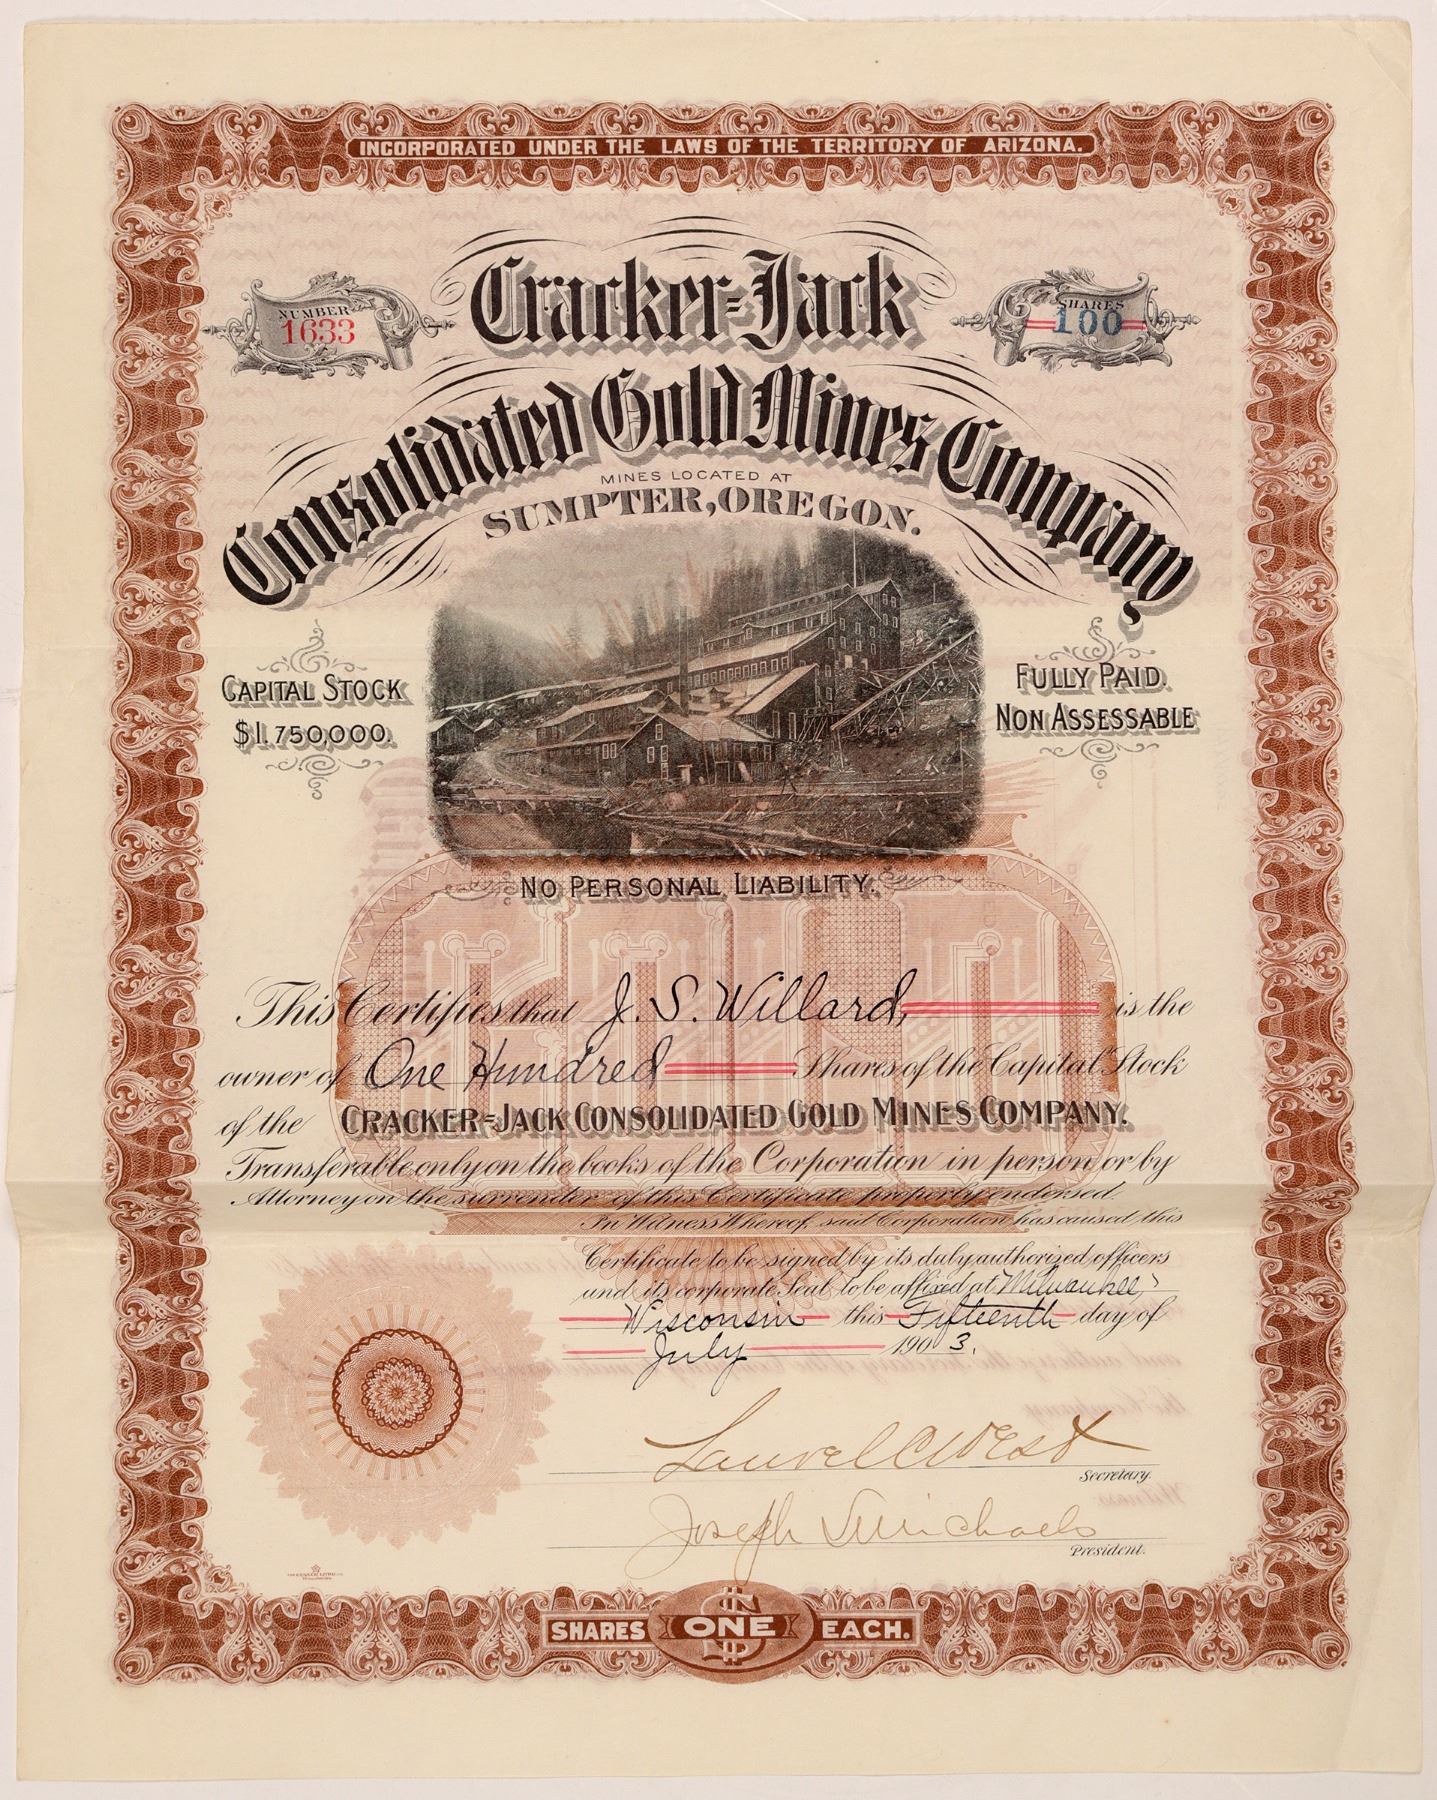 INCORPORATED UNDER THE LAWS OF THE TERRITORY OF ARIZONA.
NUMBER
1633
Cracker=Jack
SHARES
100
Consolidated Gold Mines Company
MINES LOCATED AT
SUMPTER, OREGON.
CAPITAL STOCK
$1,750,000.
FULLY PAID.
NON ASSESSABLE
NO PERSONAL LIABILITY.
GOLD
This Certifies that J. S. Willard, is the
owner of One Hundred Shares of the Capital Stock
of the CRACKER=JACK CONSOLIDATED GOLD MINES COMPANY.
Transferable only on the books of the Corporation in person or by
Attorney on the surrender of this Certificate properly endorsed.
In Witness Whereof, said Corporation has caused this
Certificate to be signed by its duly authorized officers
and its corporate Seal to be affixed at Milwaukee,
Wisconsin this Fifteenth day of
July 1903.
Laurel C West
Secretary.
Joseph S Michaels
President.
SHARES $ ONE EACH.